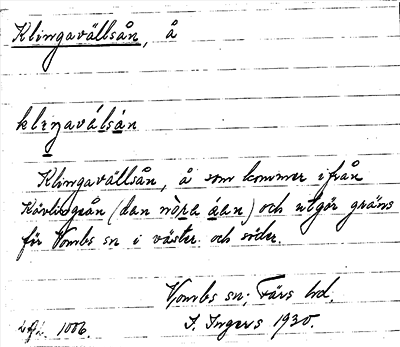 Klingavällsån, å
klıŋaválsán
Klingavällsån, å som kommer ifrån
Kävlingeån (dan nò̱ra áan) och utgör gräns
för Vombs sn i väster och söder.
Vombs sn; Färs hd.
I. Ingers 1930.
1006.